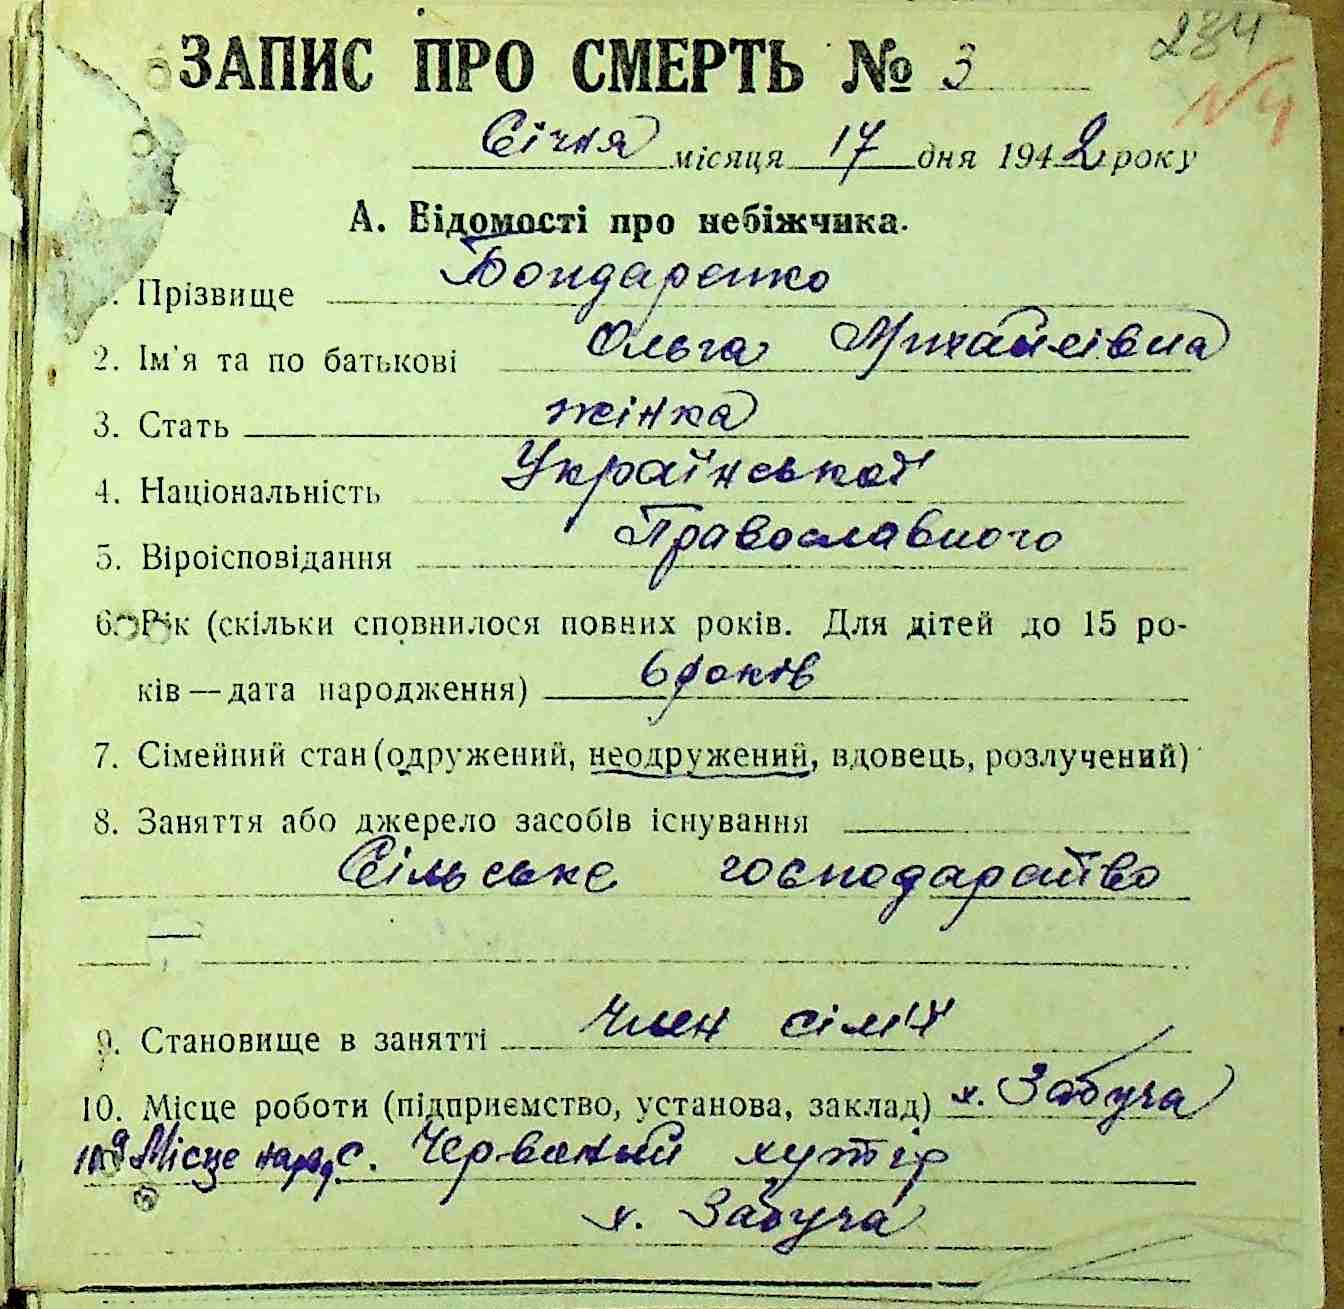 284
ЗАПИС ПРО СМЕРТЬ № 3
№ 4
Січня місяця 17 дня 1942 року
А. Відомості про небіжчика.
Прізвище Бондаренко
2. Ім'я та по батькові Ольга Михайлівна
3. Стать жінка
4. Національність Української
5. Віроісповідання Православного
6. Рік (скільки сповнилося повних років. Для дітей до 15 ро-
ків — дата народження) 6 років
7. Сімейний стан (одружений, неодружений, вдовець, розлучений)
8. Заняття або джерело засобів існування
Сільське господарство
9. Становище в занятті Член сім'ї
10. Місце роботи (підприємство, установа, заклад) х. Забуча
10а Місце народ. с. Червоний хутір
х. Забуча